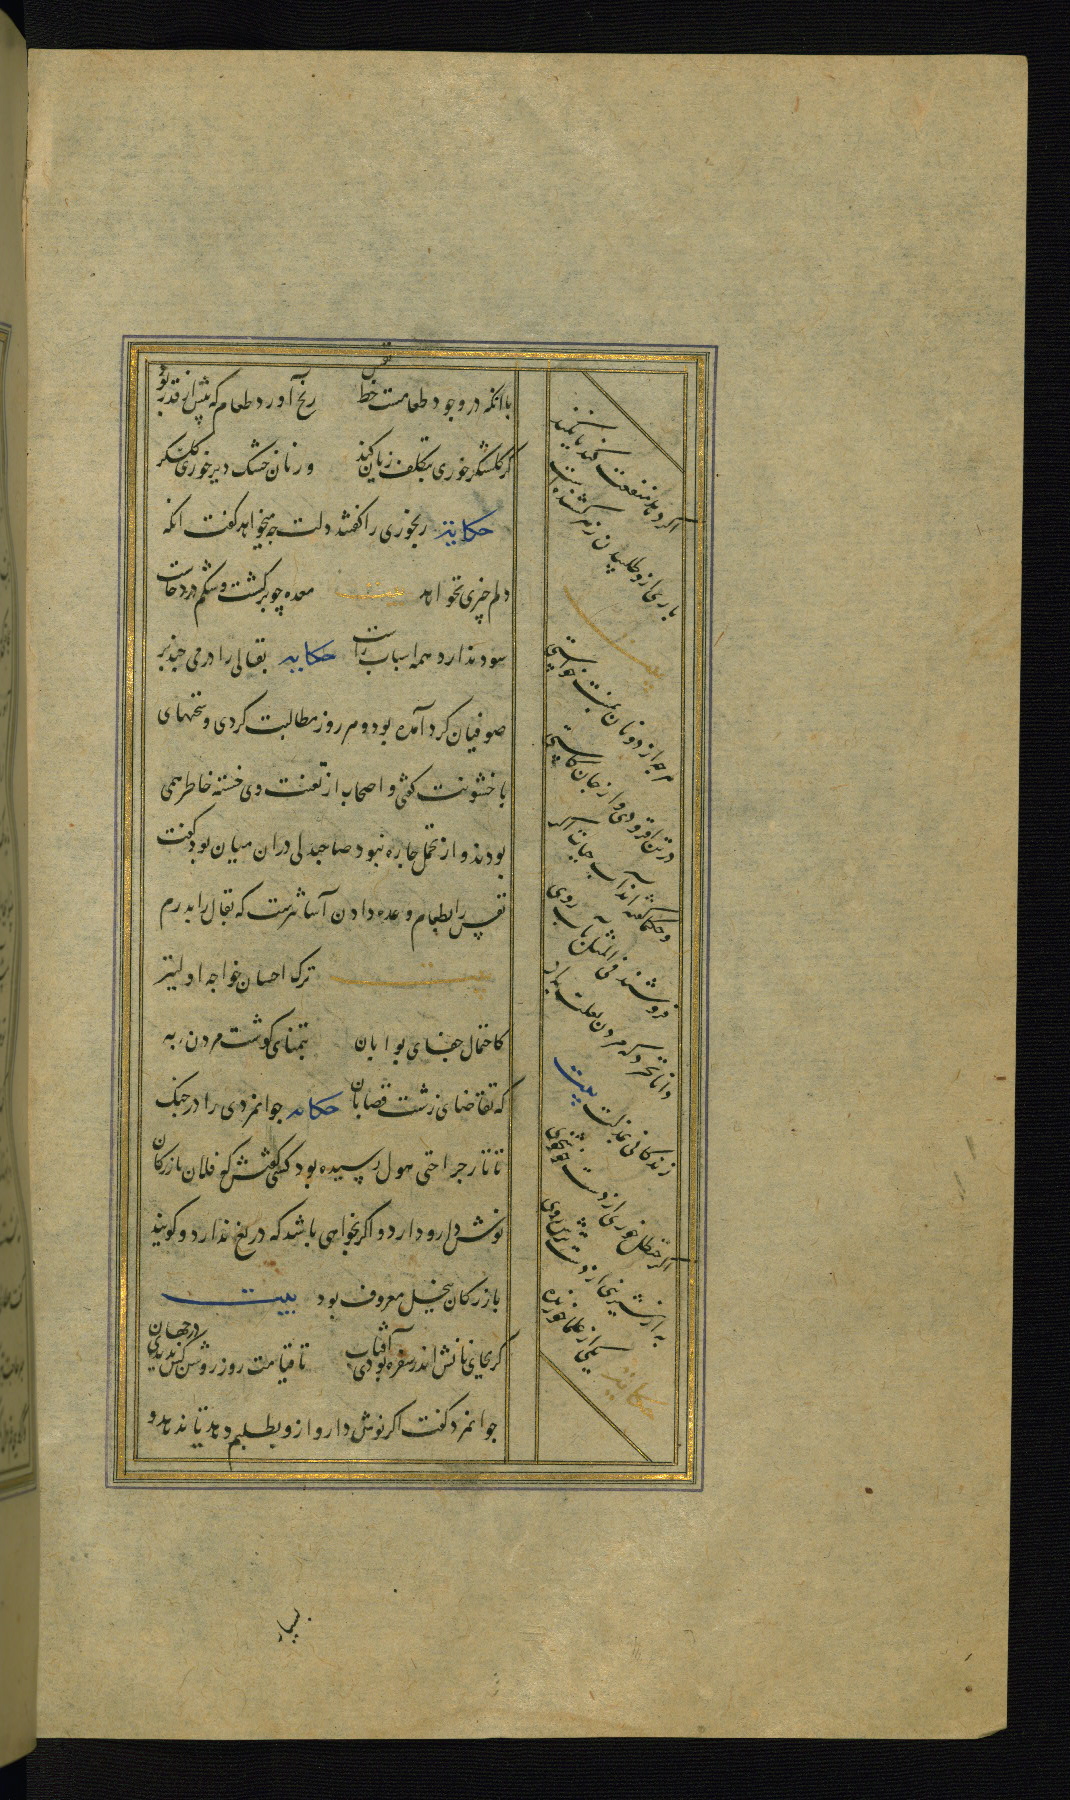 باانکه در وجود طعامست حظ نفس رنج آورد طعام که بیش از قدر بود
کر کلشکر خوری بتکلف زیان کند ور نان خشک دیر خوری کلشکر
حکایت رنجوری را کفتند دلت چه میخواهد کفت انکه
دلم چیزی نخواهد بیت معده چو بر کشت و شکم درد خاست
سود ندارد همه اسباب راست حکایه بقالی را درمی چند بر
صوفیان کرد آمده بود و هر روز مطالبت کردی و سخنهای
با خشونت کفتی و اصحاب از تعنت وی خسته خاطر همی
بودند و از تحمل چاره نبود صاحبدلی دران میان بود کفت
نفس را بطعام وعده دادن آسانترست که بقال را بدرم
بیت ترک احسان خواجه اولیتر
کاحتمال جفای بوابان بتمنای کوشت مردن به
که تقاضای زشت قصابان حکایه جوانمردی را در جنک
تاتار جراحتی هول رسیده بود کسی کفتش که فلان بازرکان
نوش دارو دارد و اکر بخواهی باشد که دریغ ندارد و کویند
بازرکان ببخل معروف بود بیت
کر بجای نانش اندر سفره بودی آفتاب تا قیامت روز روشن کس ندیدی در جهان
جوانمرد کفت اکر نوش دارو ازو بطلبم دهد یا ندهد و
اکر دهد منفعت کند یا نکند
باری ازو طلبیدن زهر کشنده است
بیت
هرچه از دونان بمنت خواستی
در تن افزودی و از جان کاستی
و حکما کفته اند آب حیات اکر
فروشند فی المثل بآب روی
دانا نخرد که مردن بعلت به از
زندکانی بمذلت بیت
اکر حنظل خوری از دست خوشخوی
به از شیرینی از دست ترش روی
حکایت یکی از علما خورنده
بسیار